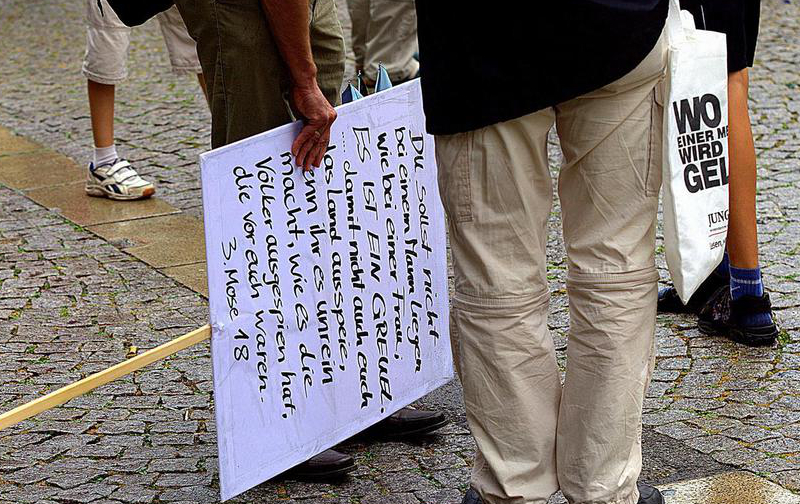 Du sollst nicht
bei einem Mann liegen
wie bei einer Frau,
ES IST EIN GREUEL.
.... damit nicht auch euch
das Land ausspeie,
wenn ihr es unrein
macht, wie es die
Völker ausgespien hat,
die vor euch waren.
3. Mose 18
WO
EINER M
WIRD
GEL
JUNG